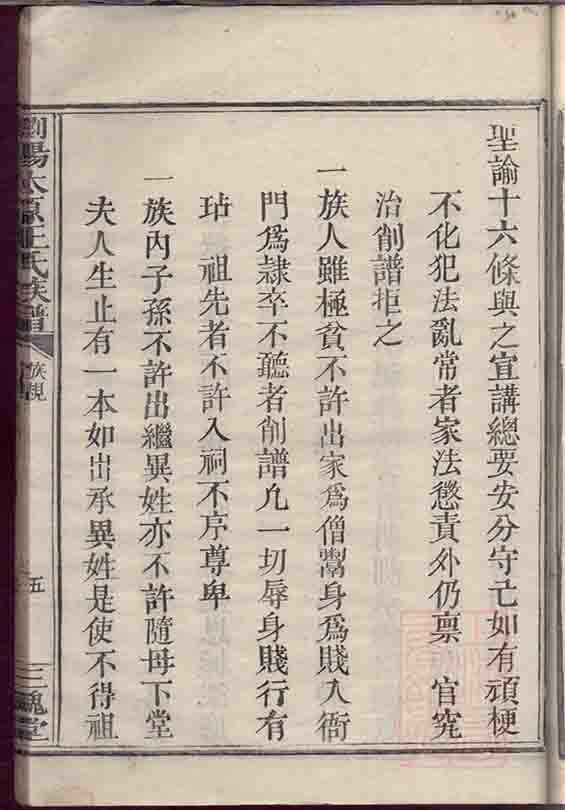 聖諭十六條與之宣講總要安分守亡如有頑梗
不化犯法亂常者家法懲責外仍稟 官究
治削譜拒之
一族人雖極貧不許出家爲僧鬻身爲賤入衙
門爲隷卒不聽者削譜凢一切辱身賤行有
玷 祖先者不許入祠不序尊卑
一族內子孫不許出繼異姓亦不許隨母下堂
夫人生止有一本如出承異姓是使不得祖
瀏陽太原王氏族譜
族規
五
三槐堂